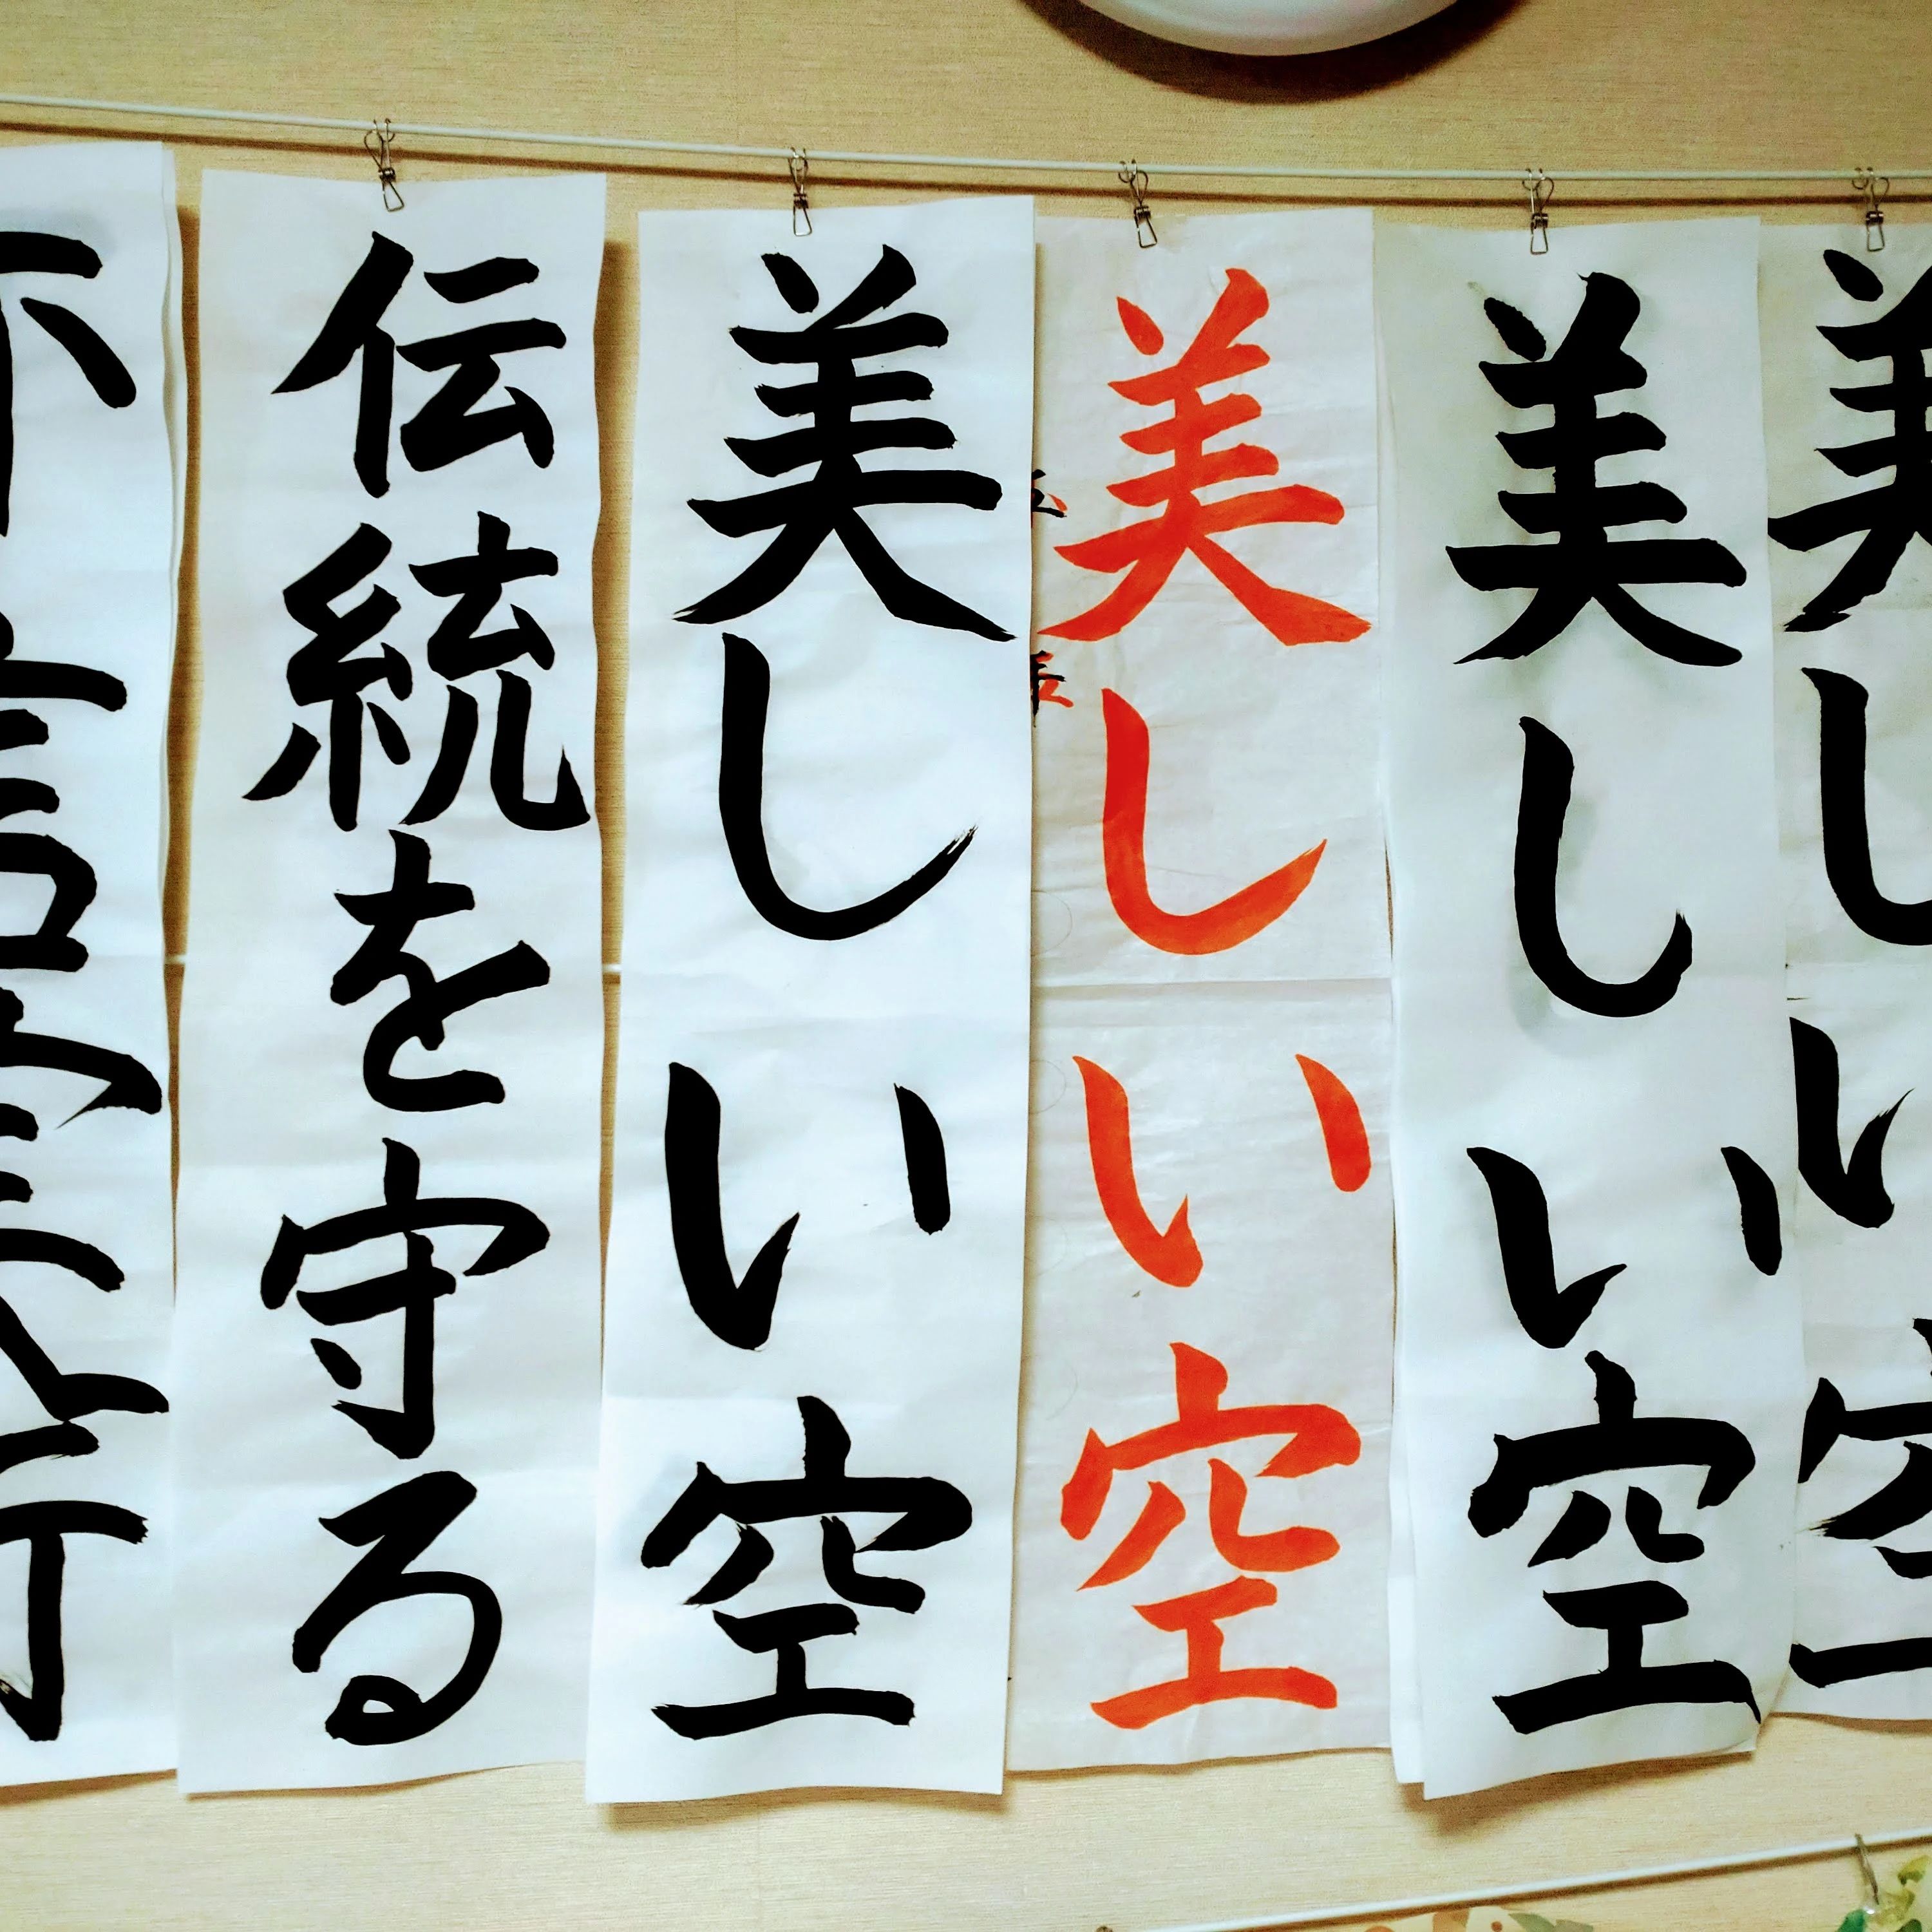 美しい空
美しい空
美しい空
美しい空
伝統を守る
不言実行